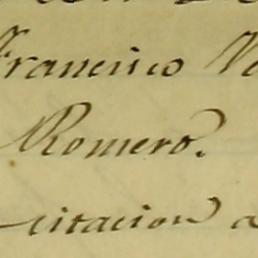 Francisco
Romero.
citacion a